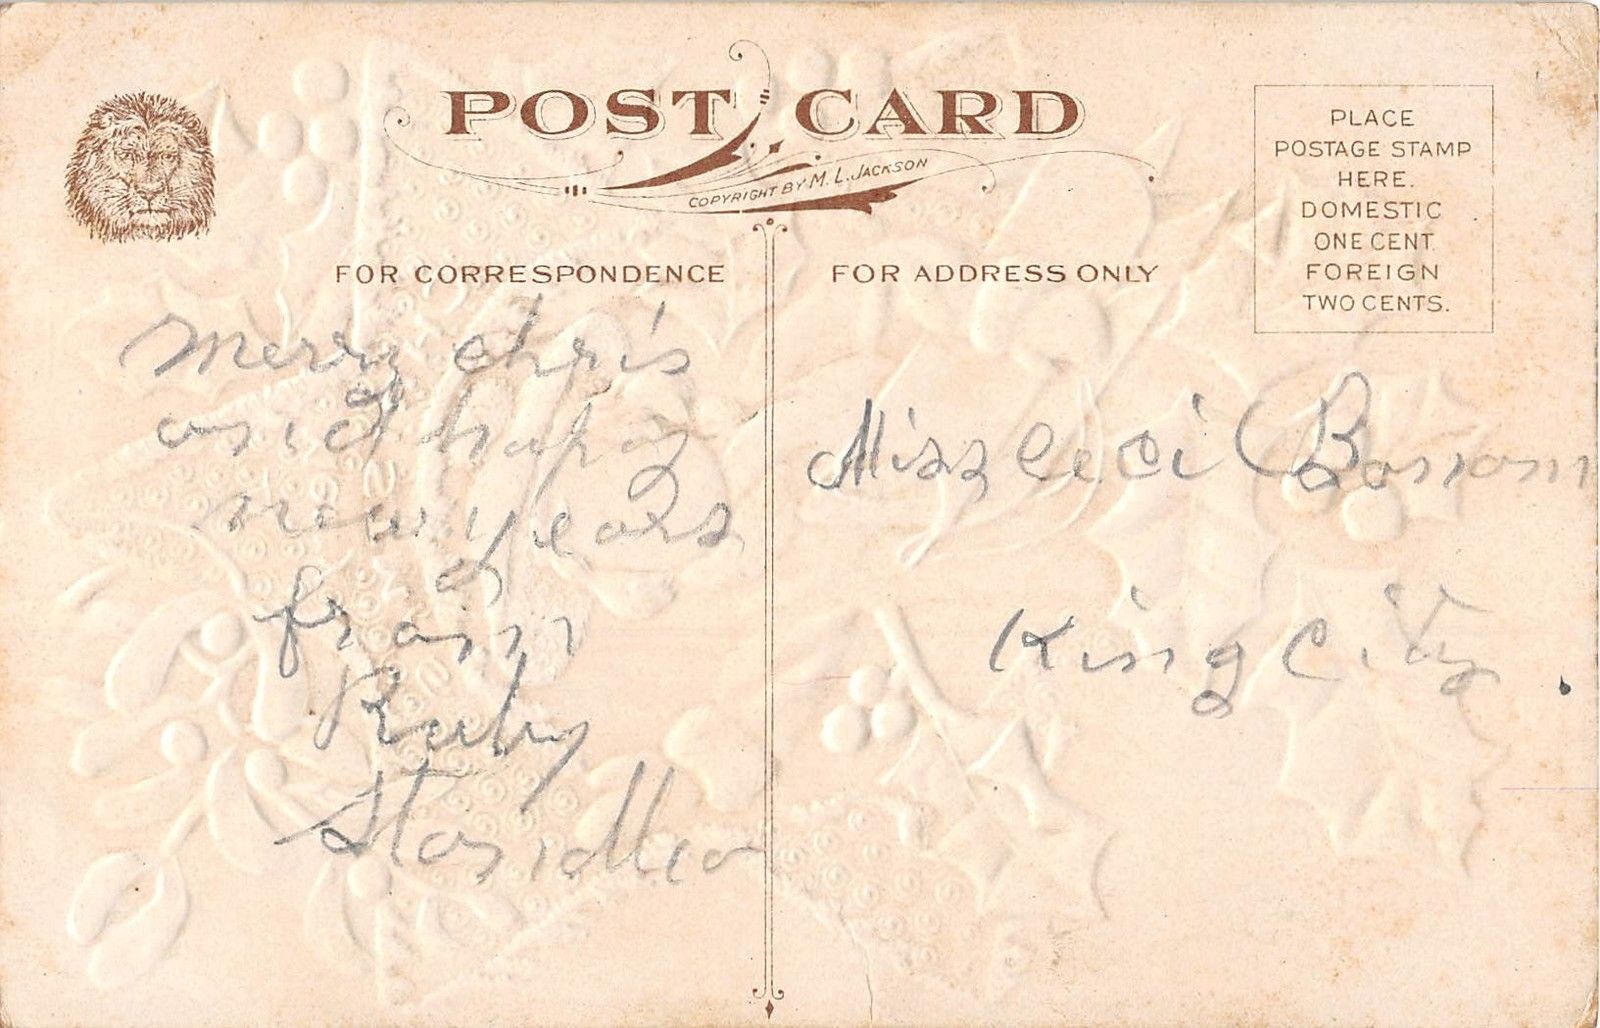 POST CARD
COPYRIGHT BY M. L. JACKSON
PLACE
POSTAGE STAMP
HERE.
DOMESTIC
ONE CENT
FOREIGN
TWO CENTS.
FOR CORRESPONDENCE
merry chris
and happy
new years
from
Ruby
FOR ADDRESS ONLY
Miss Ceci
King City